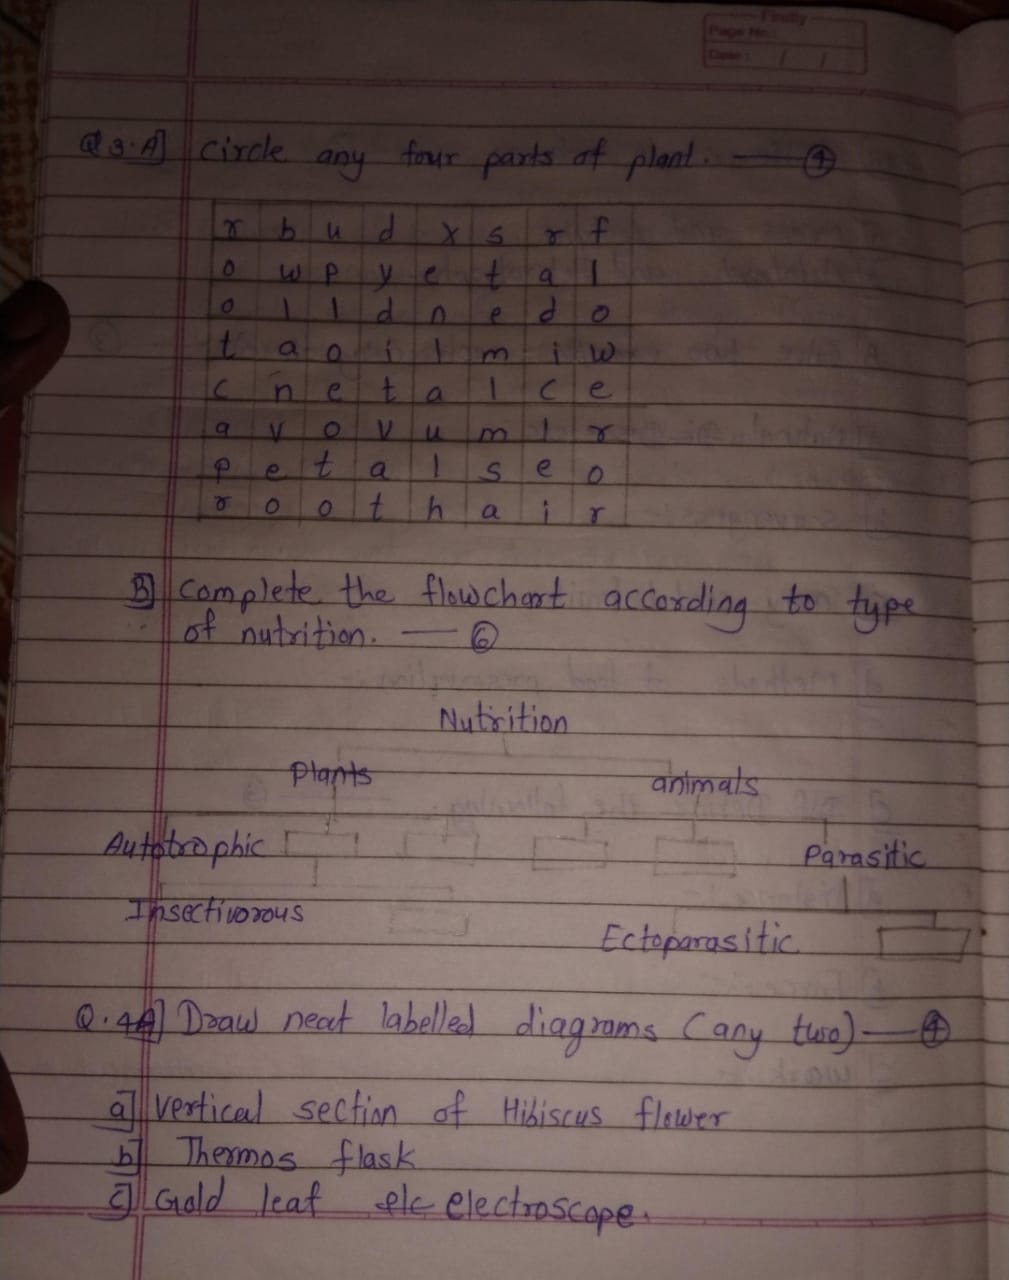 Firstly
Page No.:
Date: / /
Q 3. A] Circle any four parts of plant. — 4
r b u d x s r f
o w p y e t a l
o l l d n e d o
t a o i l m i w
c n e t a l c e
a v o v u m l r
p e t a l s e o
r o o t h a i r
B] Complete the flowchart according to type
of nutrition. — 6
Nutrition
Plants animals
Autotrophic Parasitic
Insectivorous
Ectoparasitic
Q. 4A] Draw neat labelled diagrams (any two) — 4
a] Vertical section of Hibiscus flower
b] Thermos flask
c] Gold leaf electroscope.